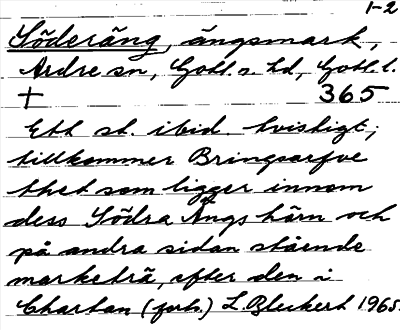 1-2
Söderäng, ängsmark,
Ardre sn, Gotl. s. hd, Gotl. l.
† 365
Ett st. ibid. tvistigt;
tillkommer Bringsarfve
thet som ligger innom
dess Södra Ängs hörn och
på andra sidan stående
marketrä, efter den i
Chartan (forts.) L. Bleckert 1965.